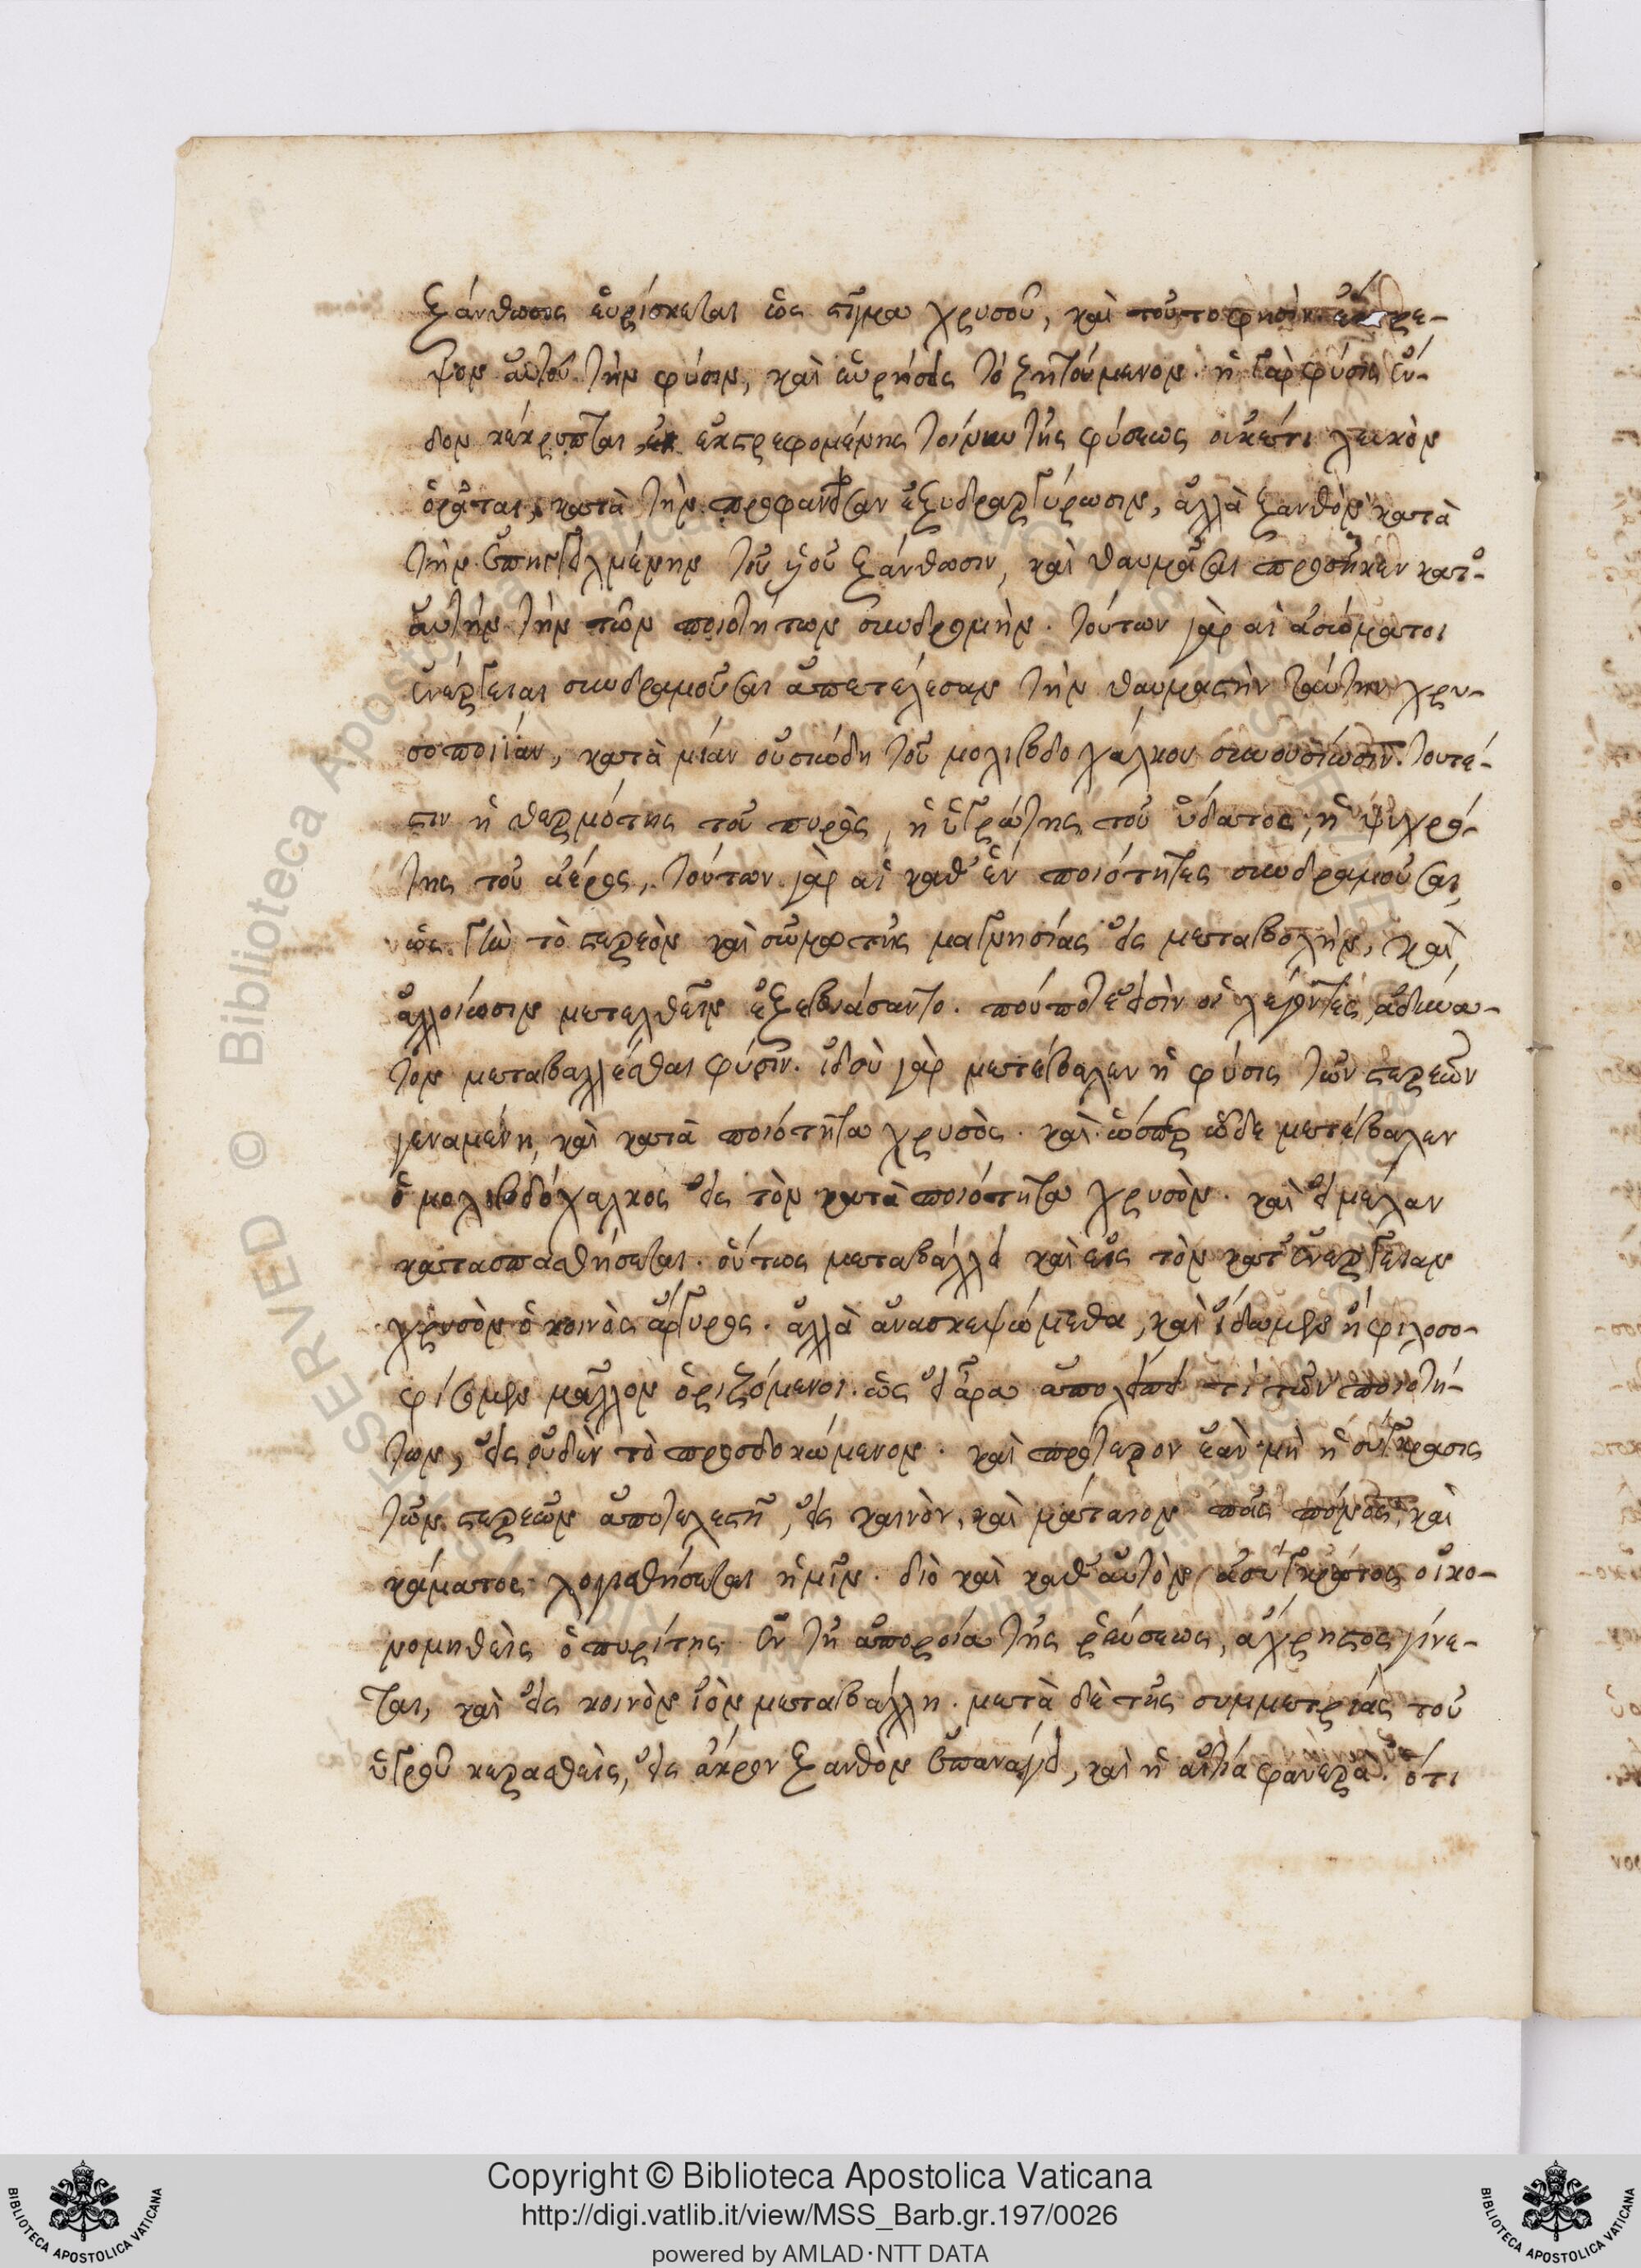 ξάνθωσις εὑρίσκεται ὡς στίγμα χρυσοῦ, καὶ τοῦτο φησὶν ἔκστρε-
ψον αὐτοῦ τὴν φύσιν, καὶ εὑρήσεις τὸ ζητούμενον. ἡ γὰρ φύσις ἔν-
δον κέκρυπται ἐκστρεφομένης τοίνυν τῆς φύσεως οὐκέτι λευκὸν
ὁρᾶται, κατὰ τὴν προφανεῖσαν ἐξυδραργύρωσιν, ἀλλὰ ξανθὸν κατὰ
τὴν ἐπηγγελμένην τοῦ ἰοῦ ξάνθωσιν, καὶ θαυμάσαι προσῆκεν κατ'
αὐτὴν τὴν τῶν ποιοτήτων συνδρομὴν. τούτων γὰρ αἱ ἀσώματοι
ἐνέργειαι συνδραμοῦσαι ἀπετέλεσαν τὴν θαυμαστὴν ταύτην χρυ-
σοποιΐαν, κατὰ μίαν οὐσιώδη τοῦ μολιβδοχάλκου συνουσίωσιν. τουτέ-
στιν ἡ θερμότης τοῦ πυρὸς, ἡ ὑγρώτης τοῦ ὕδατος, ἡ ψυχρό-
της τοῦ ἀέρος, τούτων γὰρ αἱ καθ' ἓν ποιότητες συνδραμοῦσαι,
ὡς γῆν τὸ στερεὸν καὶ σῶμα τῆς μαγνησίας εἰς μεταβολὴν, καὶ
ἀλλοίωσιν μετελθεῖν ἐξεβιάσαντο. πού ποτε εἰσὶν οἱ λέγοντες, ἀδύνα-
τον μεταβαλλέσθαι φύσιν. ἰδοὺ γὰρ μετέβαλεν ἡ φύσις τῶν στερεῶν
γεναμένη, καὶ κατὰ ποιότητα χρυσὸς. καὶ ὥσπερ ὧδε μετέβαλεν
ὁ μολιβδόχαλκος εἰς τὸν κατὰ ποιότητα χρυσὸν. καὶ εἰ μέλαν
κατασπασθήσεται. οὕτως μεταβάλλει καὶ εἰς τὸν κατ' ἐνέργειαν
χρυσὸν ὁ κοινὸς ἄργυρος. ἀλλὰ ἀνασκεψώμεθα, καὶ ἴδωμεν ἡ φιλοσο-
φίσωμεν μᾶλλον ὁριζόμενοι. ὡς εἰ ἄρα ἀπολείπει τὶ τῶν ποιοτή-
των, εἰς οὐδὲν τὸ προσδοκώμενον. καὶ πρότερον ἐὰν μὴ ἡ σύγκρασις
τῶν στερεῶν ἀποτελεστῇ, εἰς καινὸν, καὶ μάταιον πᾶς πόνος, καὶ
κάματος λογισθήσεται ἡμῖν. διὸ καὶ καθ' αὐτὸν ἀσύγκρατος οἰκο-
νομηθεὶς ὁ πυρίτης. ἐν τῇ ἀποροία τῆς ῥεύσεως, ἄχρηστος γίνε-
ται, καὶ εἰς κοινὸν ἰὸν μεταβάλλη. μετὰ δὲ τῆς συμμετρίας τοῦ
ὑγροῦ κερασθεὶς, εἰς ἄκρον ξανθὸν ἐπανάγει, καὶ ἡ αἰτία φανερὰ. ὅτι
Copyright © Biblioteca Apostolica Vaticana
http://digi.vatlib.it/view/MSS_Barb.gr.197/0026
powered by AMLAD·NTT DATA
BIBLIOTECA APOSTOLICA VATICANA
BIBLIOTECA APOSTOLICA VATICANA